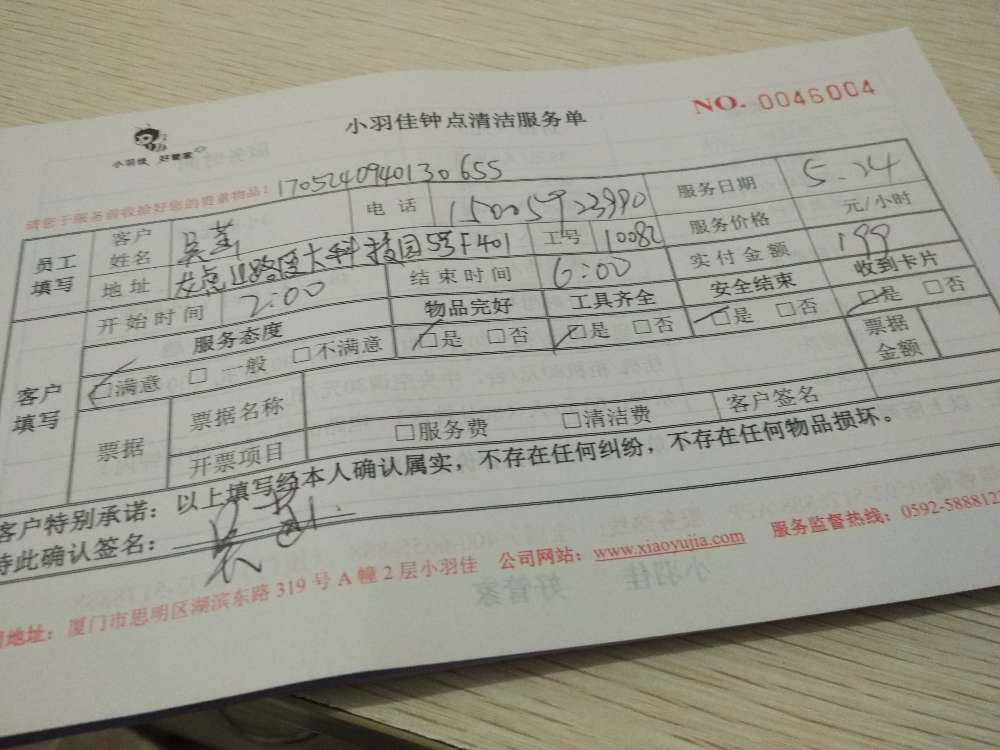 小羽佳钟点清洁服务单 NO. 0046004
小羽佳 好管家
请您于服务前收拾好您的贵重物品! 1705240940130655
员工填写 客户姓名 吴 电话 15005923990 服务日期 5.24
地址 大科技园5号F401 工号 10082 服务价格 元/小时
开始时间 2:00 结束时间 6:00 实付金额 199
客户填写 服务态度 物品完好 工具齐全 安全结束 收到卡片
□满意 □一般 □不满意 □是 □否 □是 □否 □是 □否 □是 □否
票据 票据名称 票据金额
开票项目 □服务费 □清洁费 客户签名
客户特别承诺:以上填写经本人确认属实,不存在任何纠纷,不存在任何物品损坏。
特此确认签名:
地址:厦门市思明区湖滨东路 319 号 A 幢 2 层小羽佳 公司网站:www.xiaoyujia.com 服务监督热线:0592-588812